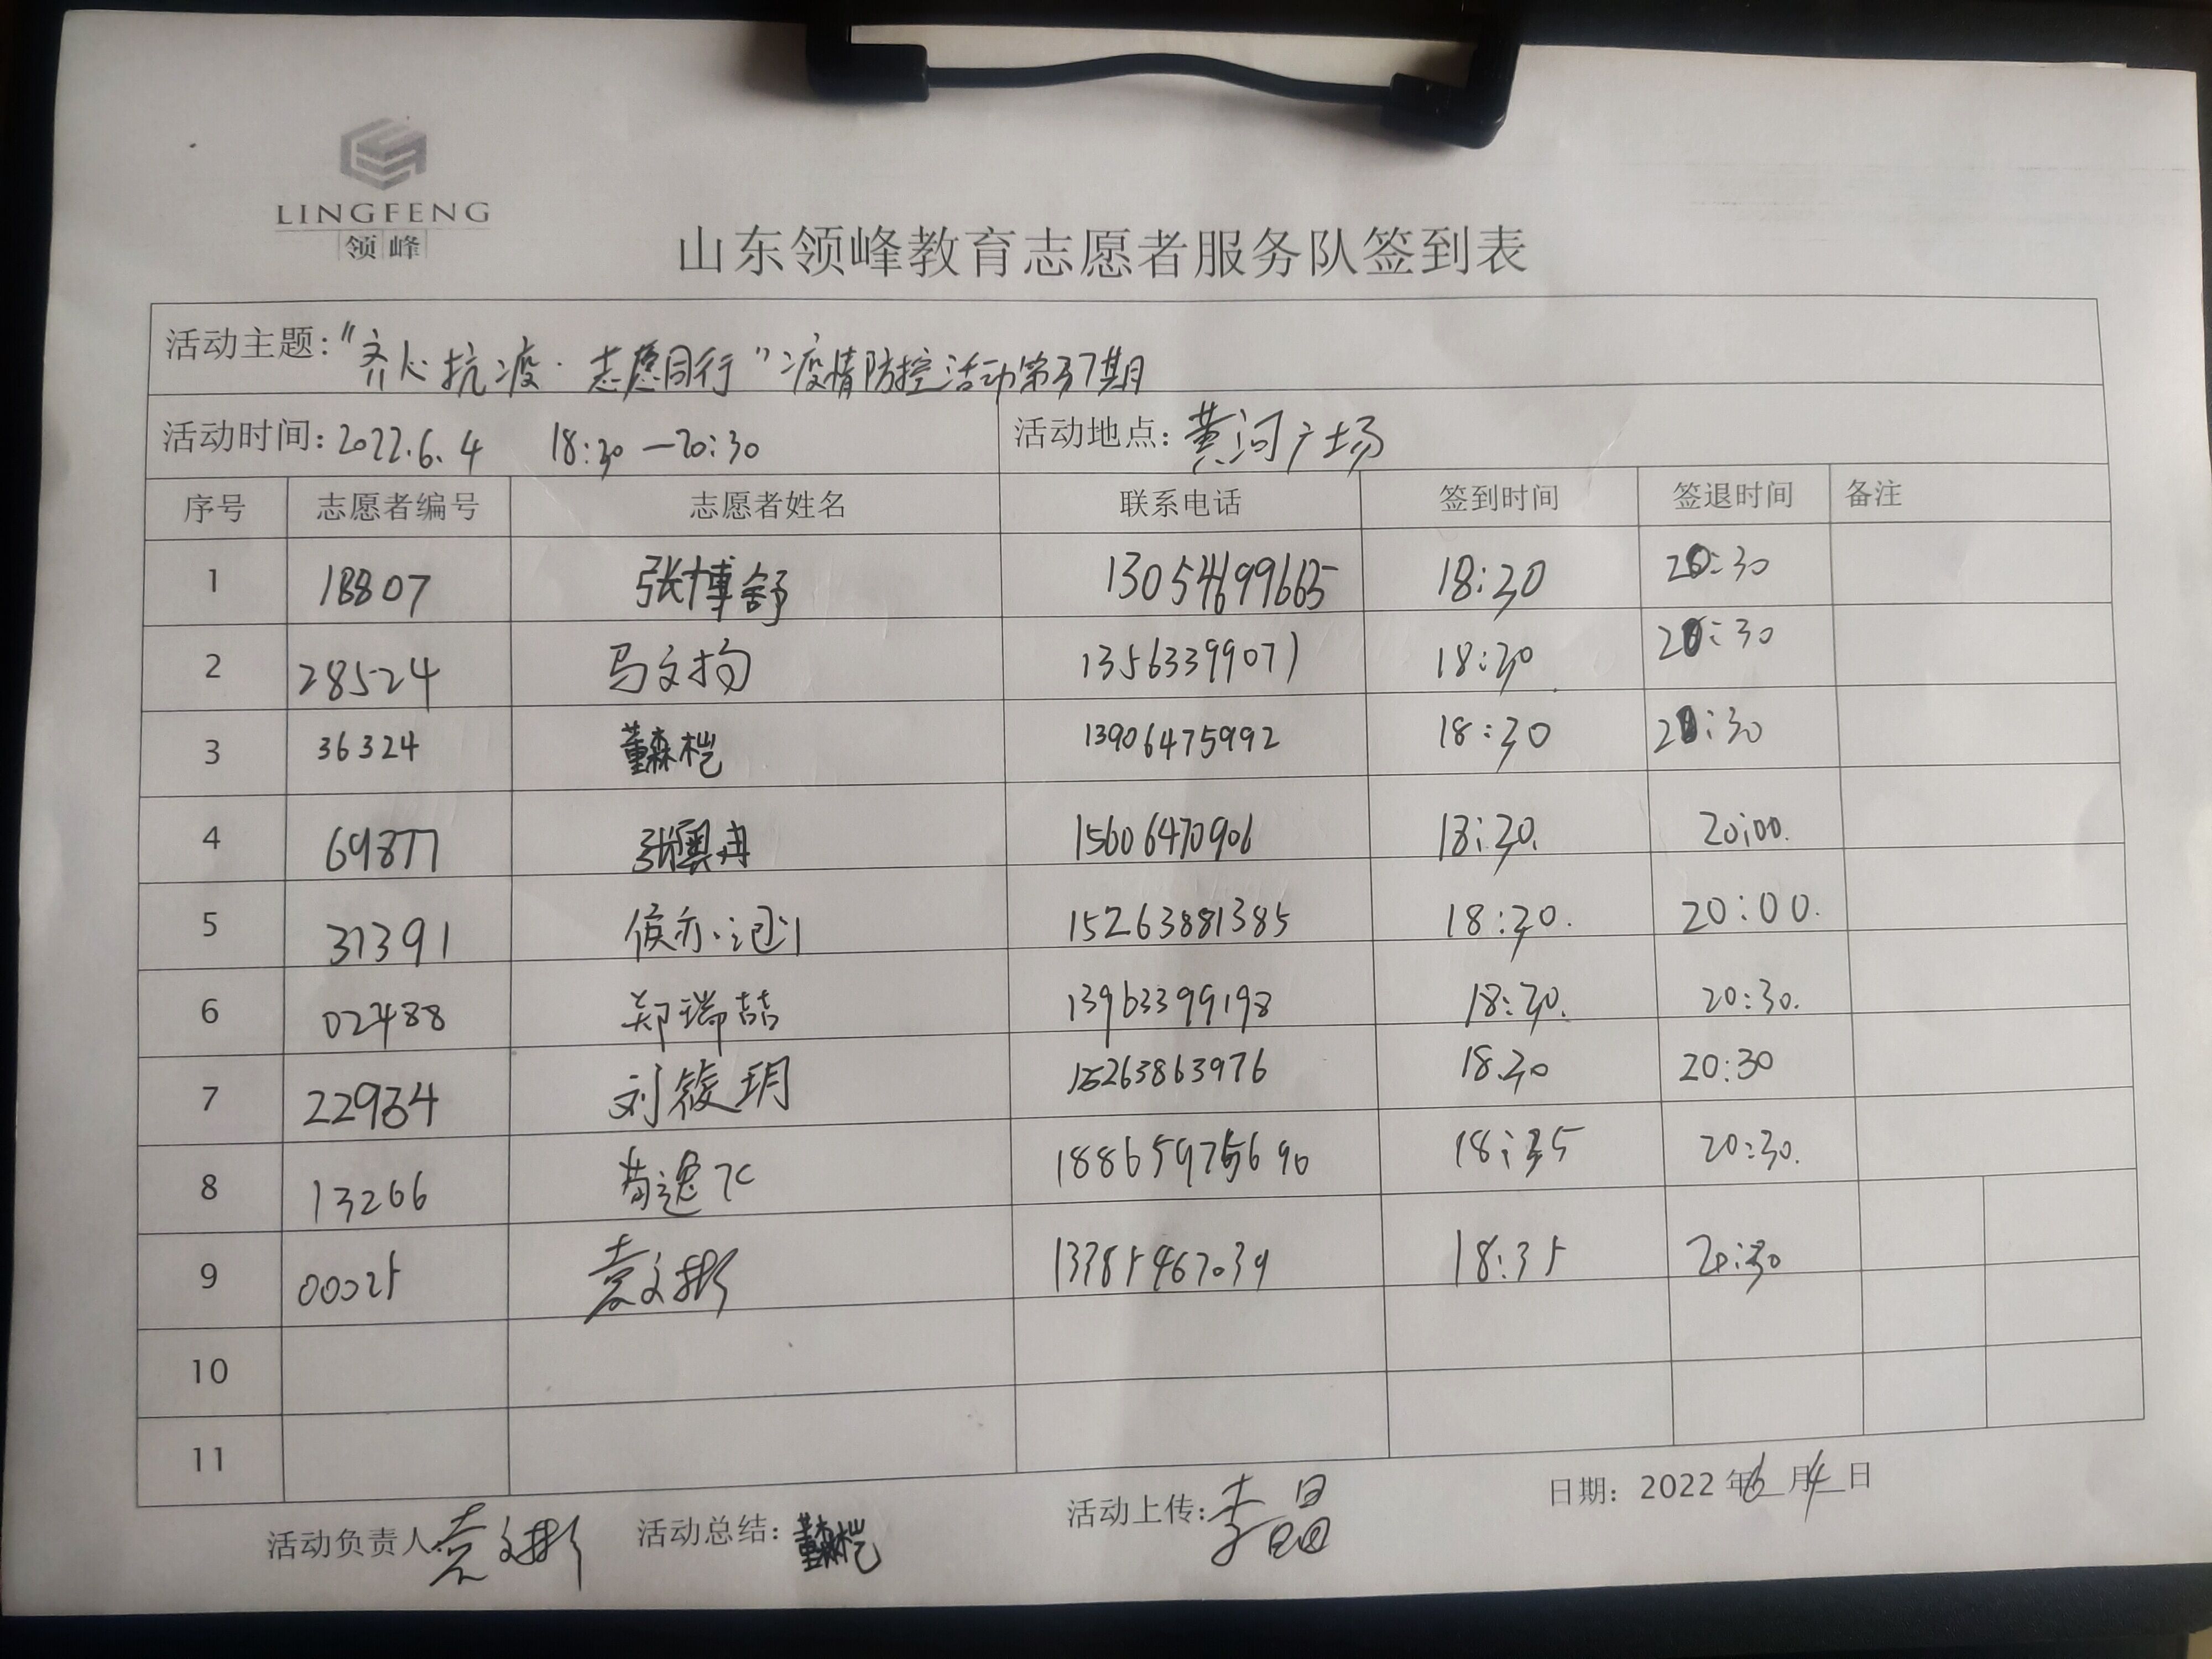 LINGFENG
领峰
山东领峰教育志愿者服务队签到表
活动主题："齐心抗疫·志愿同行"疫情防控活动第37期
活动时间：2022.6.4 18:30—20:30 活动地点：黄河广场
序号 志愿者编号 志愿者姓名 联系电话 签到时间 签退时间 备注
1 18807 张博舒 18:30 20:30
2 28524 马文 13563399071 18:30 20:30
3 36324 董森桤 13906475992 18:30 20:30
4 69877 张奥冉 15606470906 18:30. 20:00.
5 31391 侯亦 15263881385 18:30. 20:00.
6 02488 郑瑞喆 13963399198 18:30. 20:30.
7 22934 刘筱玥 15263863976 18.30 20:30
8 13266 18:35 20:30.
9 00025 袁文彬 18:35 20:30
10
11
活动负责人：袁文彬 活动总结：董森桤 活动上传：李晶 日期：2022年6月4日